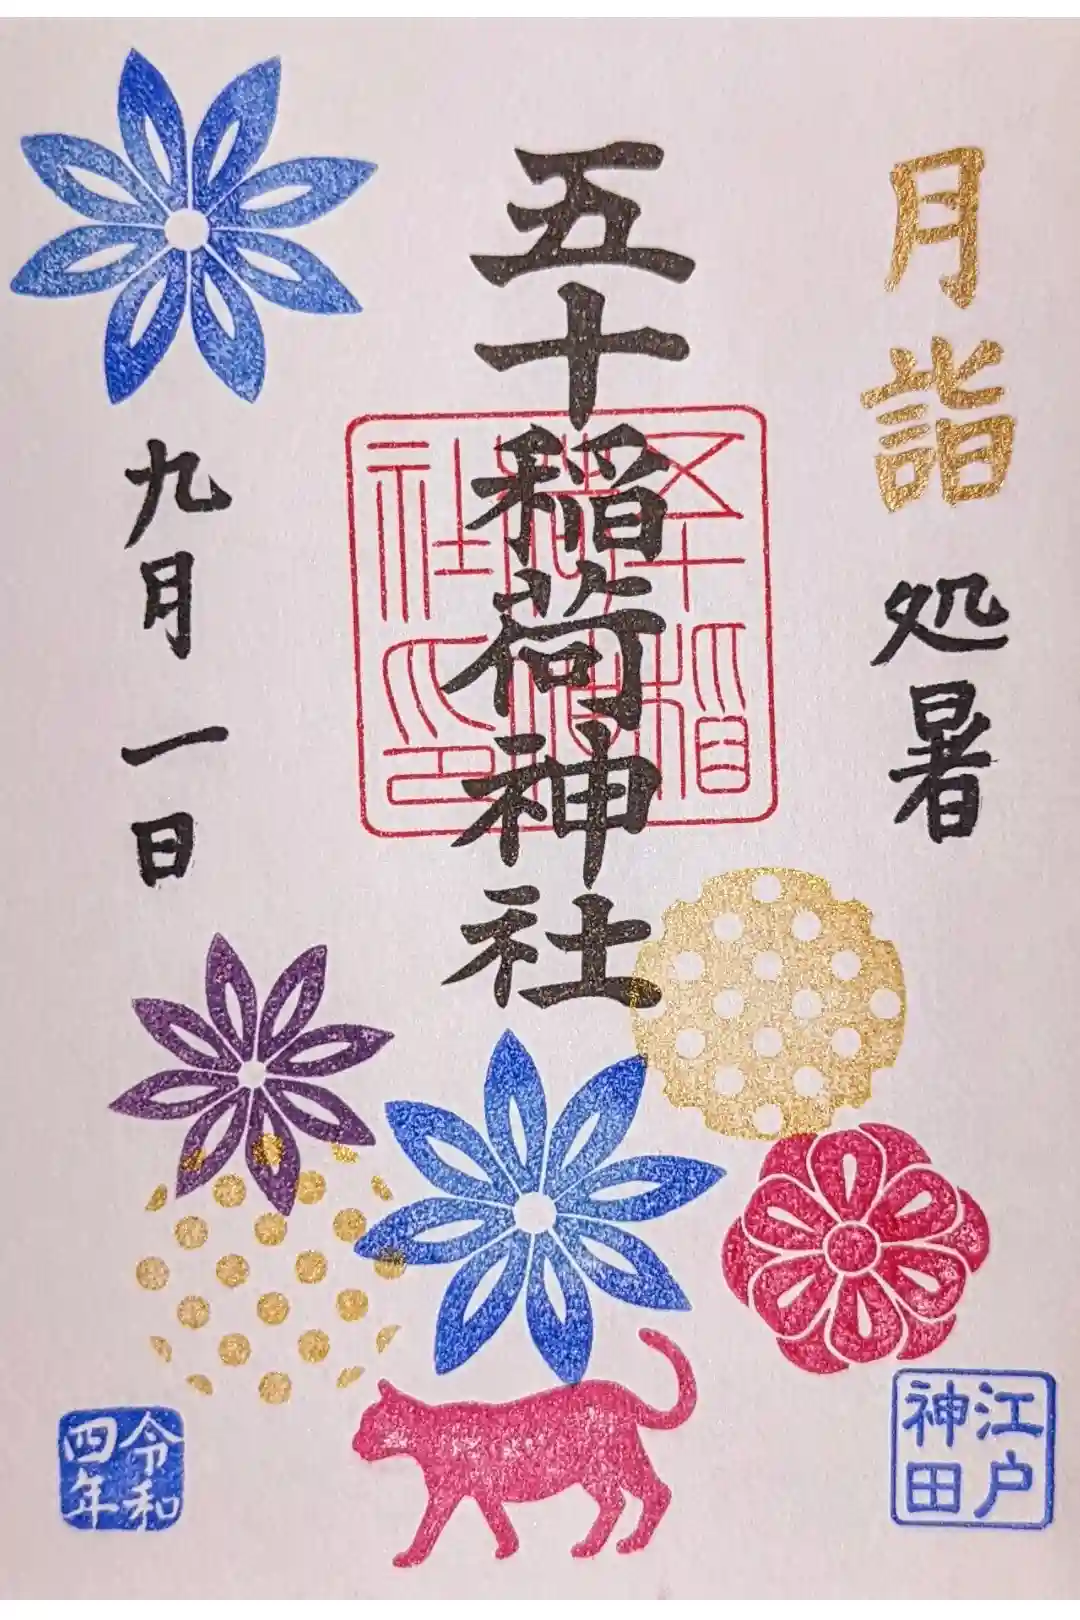 月詣 処暑
五十稲荷神社
五十稲荷神社印
九月一日
江戸神田
令和四年